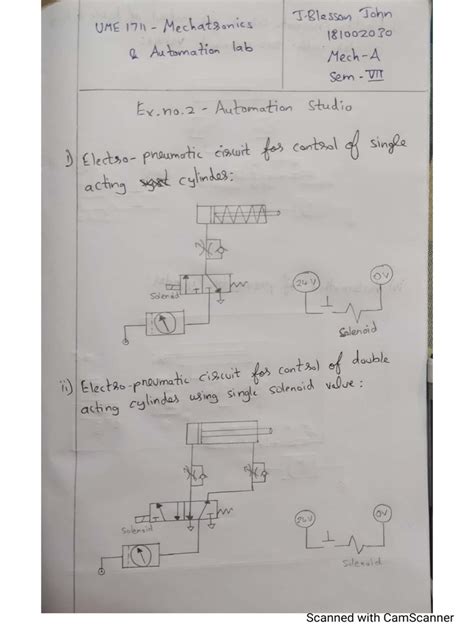 UME 1711 - Mechatronics
& Automation lab
J. Blessan John
181002030
Mech-A
Sem - VII
Ex.no.2 - Automation Studio
i) Electro-pneumatic circuit for control of single
acting cylinder:
Solenoid
24V
0V
Solenoid
ii) Electro-pneumatic circuit for control of double
acting cylinder using single solenoid valve:
Solenoid
24V
0V
Solenoid
Scanned with CamScanner